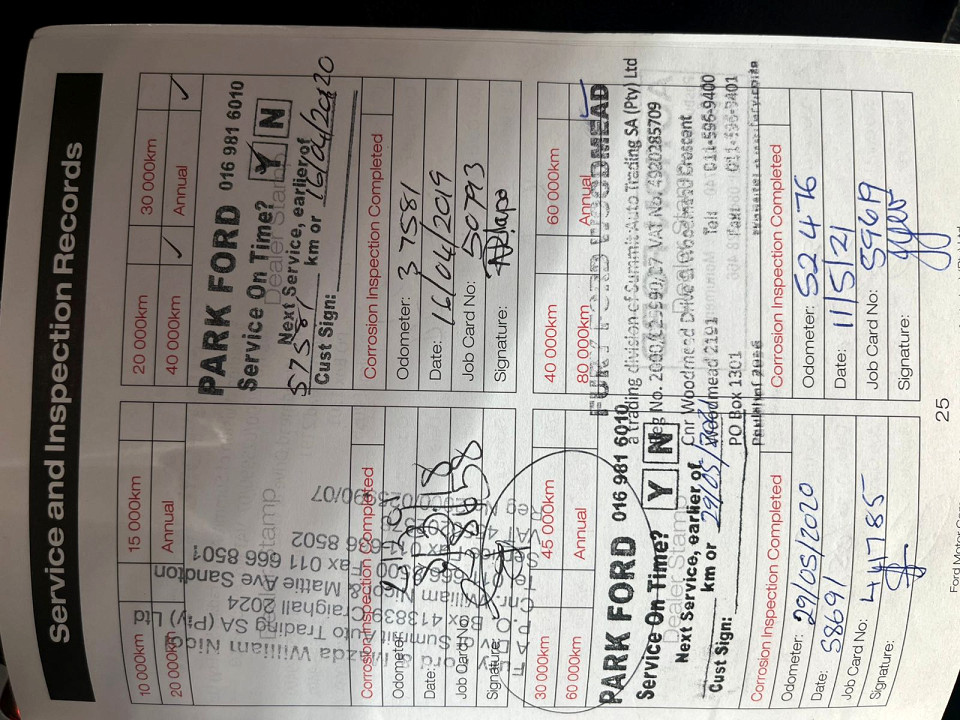 Service and Inspection Records
10 000km 15 000km
20 000km Annual
Fury Ford & Mazda William Nicol
A Div Summit Auto Trading SA (Pty) Ltd
P.O. Box 413836 Craighall 2024
Cnr William Nicol & Mattie Ave Sandton
Fax 011 666 8501
Corrosion Inspection Completed
Odometer:
Date:
Job Card No:
Signature:
20 000km 30 000km
40 000km ✓ Annual ✓
PARK FORD 016 981 6010
Service On Time? Y N
Next Service, earlier of
57581 km or 16/04/2020
Cust Sign:
Dealer Stamp
Corrosion Inspection Completed
Odometer: 37581
Date: 16/04/2019
Job Card No: 50793
Signature:
30 000km 45 000km
60 000km Annual
PARK FORD 016 981 6010
Service On Time? Y N
Dealer Stamp
Next Service, earlier of
km or 29/05/2021
Cust Sign:
Corrosion Inspection Completed
Odometer: 29/05/2020
Date: 58691
Job Card No: 44785
Signature:
40 000km 60 000km
80 000km Annual ✓
FURY FORD WOODMEAD
a trading division of Summit Auto Trading SA (Pty) Ltd
Reg No. 2000/029590/07 VAT No: 4920285709
Cnr Woodmead Drive & Woodmead Crescent
Woodmead 2191 Tel: 011-596-9400
PO Box 1301 Fax: 011-596-9401
Corrosion Inspection Completed
Odometer: 52 476
Date: 11/5/21
Job Card No: 59619
Signature:
25